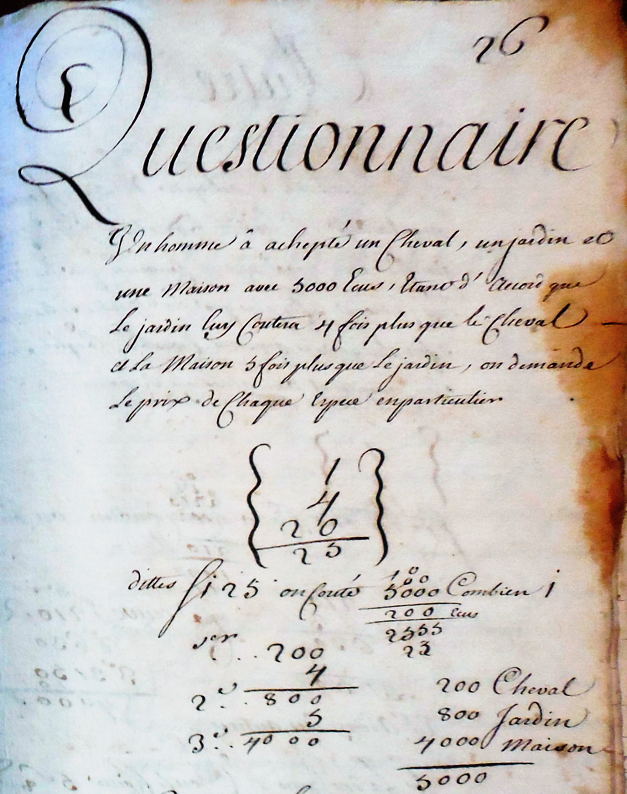 26
Questionnaire
Un homme â achepté un Cheval, un jardin et
une Maison avec 5000 Ecus, Etant d'Accord que
Le jardin luy Coutera 4 fois plus que le Cheval
et La Maison 5 fois plus que Le jardin, on demande
Le prix de Chaque Espece en particulier
1
4
20
25
dittes Si 25 on Couté 5000 Combien 1
200 Ecus
2555
25
1er .. 200
4
2e .. 800
5
3e .. 4000
200 Cheval
800 Jardin
4000 Maison
5000